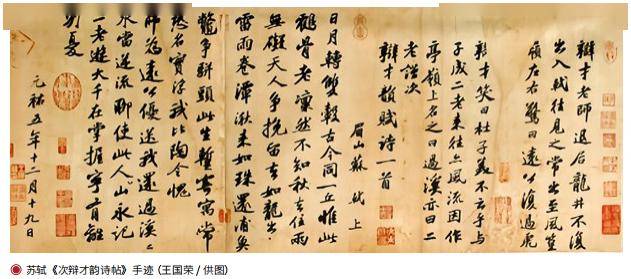 辯才老師退居龍井不復
出入軾往見之常出至風篁
嶺左右驚曰遠公復過虎
辯才笑曰杜子美不云乎與
子成二老來往亦風流因作
亭嶺上名之曰過溪亦曰二
老謹次
辯才韻賦詩一首
眉山蘇軾上
日月轉雙轂古今同一丘惟此
鶴骨老凜然不知秋去住兩
無礙天人爭挽留去如龍出山
雷雨卷潭湫來如珠還浦魚
鱉爭駢頭此生暫寄寓常
恐名實浮我比陶令愧
師為遠公優送我還過溪溪
水當逆流聊使此人山永記
二老遊大千在掌握寧有離
別憂
元祐五年十二月十九日
苏轼《次辩才韵诗帖》手迹 (王国荣 / 供图)